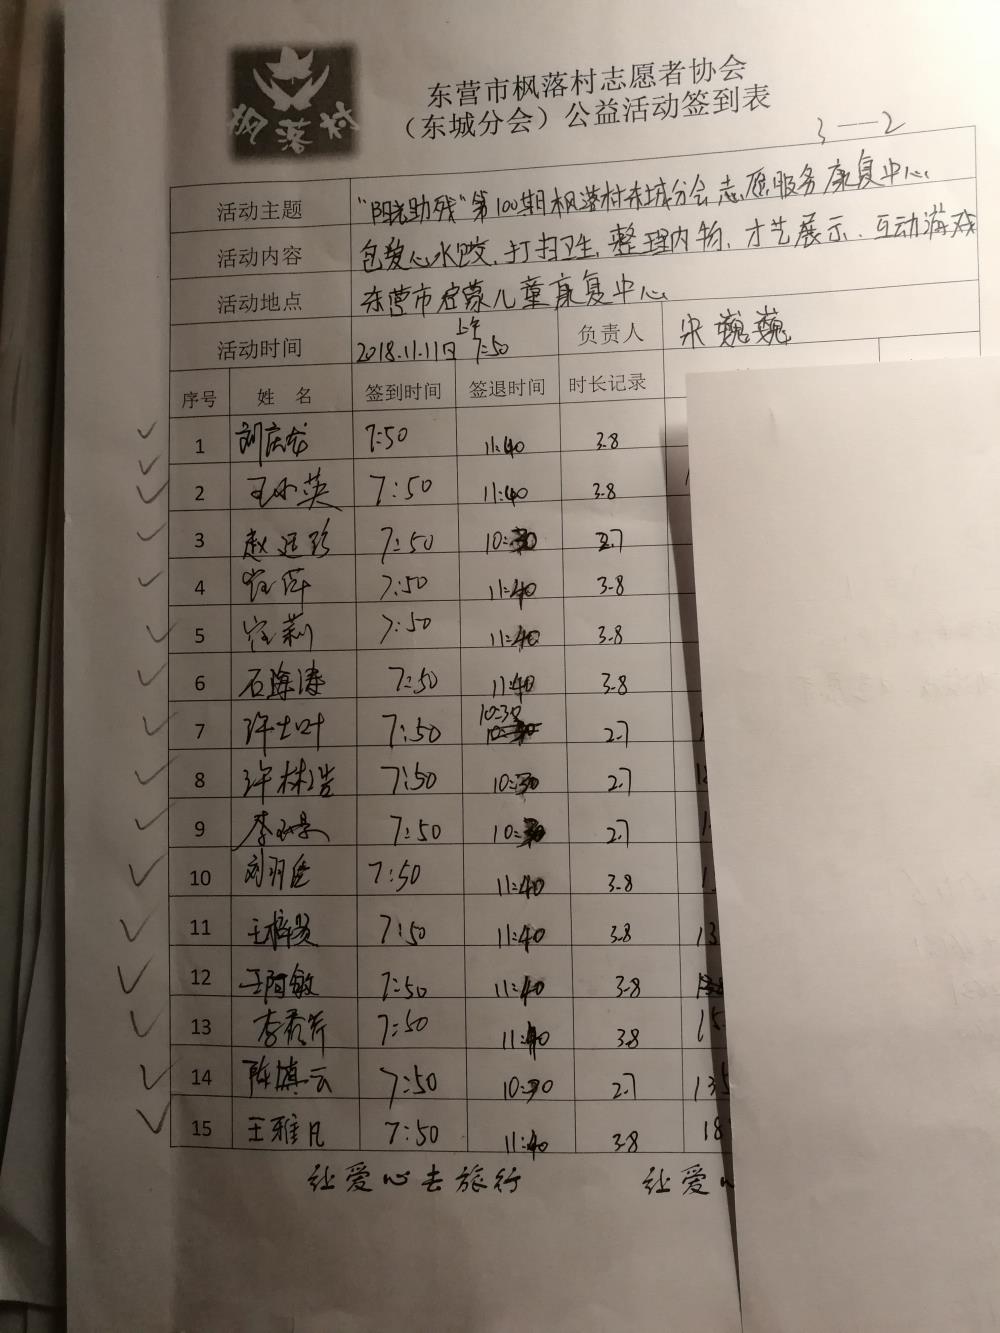 枫落村
东营市枫落村志愿者协会
（东城分会）公益活动签到表
3—2
活动主题 "阳光助残"第100期枫落村东城分会志愿服务康复中心
活动内容 包爱心水饺、打扫卫生、整理内务、才艺展示、互动游戏
活动地点 东营市启蒙儿童康复中心
活动时间 2018.11.11日 上午 7:50 负责人 宋巍巍
序号 姓 名 签到时间 签退时间 时长记录
1 刘庆龙 7:50 11:40 3.8
2 王小英 7:50 11:40 3.8
3 赵延珍 7:50 10:30 2.7
4 崔萍 7:50 11:40 3.8
5 崔莉 7:50 11:40 3.8
6 石海涛 7:50 11:40 3.8
7 许士叶 7:50 10:30 2.7
8 许林浩 7:50 10:30 2.7
9 李 7:50 10:30 2.7
10 刘羽佳 7:50 11:40 3.8
11 王梓 7:50 11:40 3.8 13
12 王阿敏 7:50 11:40 3.8
13 李秀芹 7:50 11:40 3.8 15
14 陈慎云 7:50 10:30 2.7 135
15 王雅凡 7:50 11:40 3.8 18
让爱心去旅行 让爱